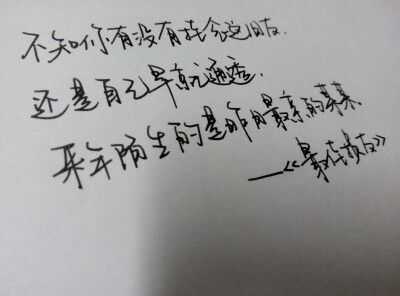 不知你有没有找余说旧友.
还是自己早就通透.
来年陌生的是昨日最亲的某某.
——《最佳损友》